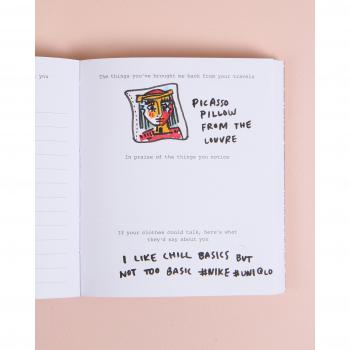 you
The things you've brought me back from your travels
PICASSO
PILLOW
FROM THE
LOUVRE
In praise of the things you notice
If your clothes could talk, here's what
they'd say about you
I LIKE CHILL BASICS BUT
NOT TOO BASIC #NIKE #UNIQLO